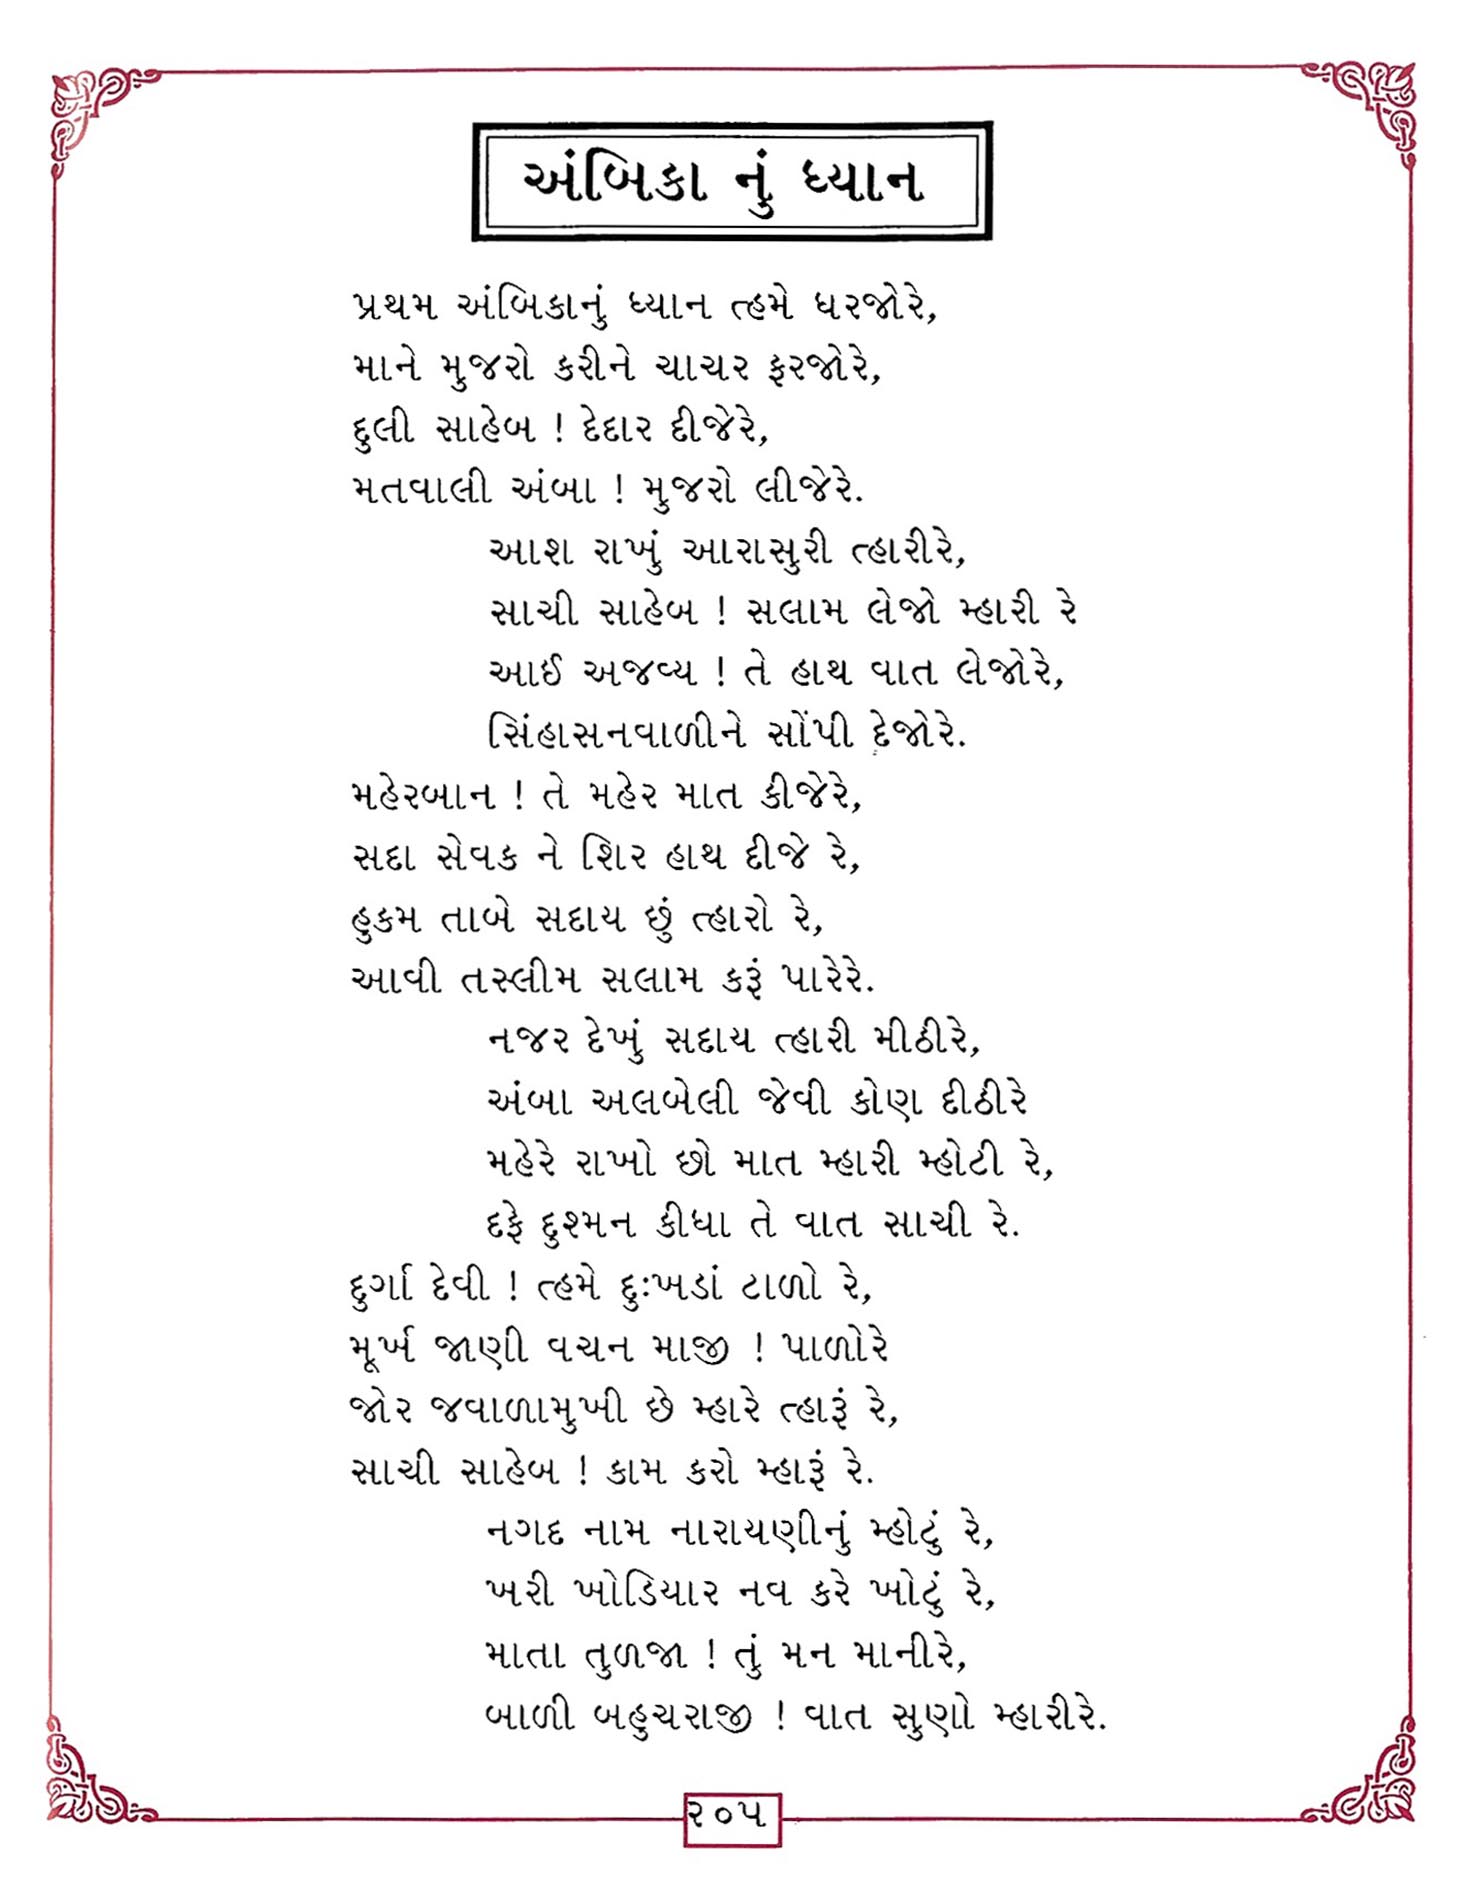 અંબિકા નું ધ્યાન
પ્રથમ અંબિકાનું ધ્યાન ત્હમે ધરજોરે,
માને મુજરો કરીને ચાચર ફરજોરે,
દુલી સાહેબ ! દેદાર દીજેરે,
મતવાલી અંબા ! મુજરો લીજેરે.
આશ રાખું આરાસુરી ત્હારીરે,
સાચી સાહેબ ! સલામ લેજો મ્હારી રે
આઈ અજવ્ય ! તે હાથ વાત લેજોરે,
સિંહાસનવાળીને સોંપી દેજોરે.
મહેરબાન ! તે મહેર માત કીજેરે,
સદા સેવક ને શિર હાથ દીજે રે,
હુકમ તાબે સદાય છું ત્હારો રે,
આવી તસ્લીમ સલામ કરૂં પારેરે.
નજર દેખું સદાય ત્હારી મીઠીરે,
અંબા અલબેલી જેવી કોણ દીઠીરે
મહેરે રાખો છો માત મ્હારી મ્હોટી રે,
દફે દુશ્મન કીધા તે વાત સાચી રે.
દુર્ગા દેવી ! ત્હમે દુઃખડાં ટાળો રે,
મૂર્ખ જાણી વચન માજી ! પાળોરે
જોર જવાળામુખી છે મ્હારે ત્હારૂં રે,
સાચી સાહેબ ! કામ કરો મ્હારૂં રે.
નગદ નામ નારાયણીનું મ્હોટું રે,
ખરી ખોડિયાર નવ કરે ખોટું રે,
માતા તુળજા ! તું મન માનીરે,
બાળી બહુચરાજી ! વાત સુણો મ્હારીરે.
૨૦૫